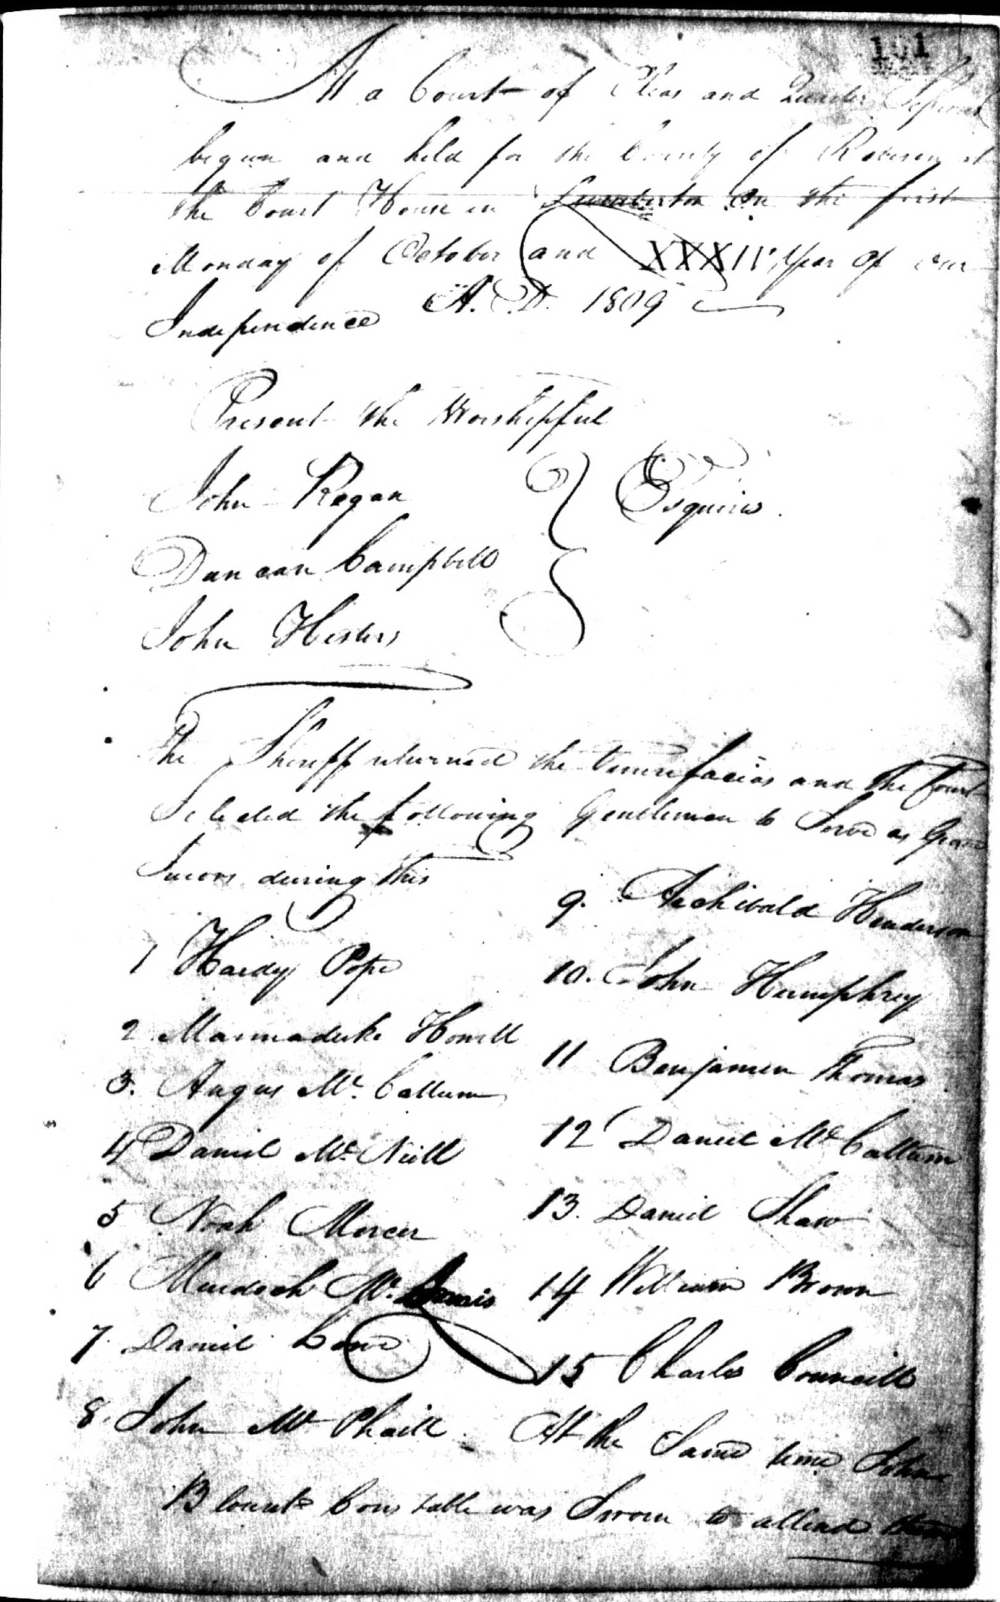 101
At a Court of Pleas and Quarter Sessions
begun and held for the County of Robeson at
the Court House in Lumberton on the first
Monday of October and XXXIV Year of our
Independence A. D. 1809
Present the Worshipful
John Regan
Esquires
Duncan Campbell
John Hesters
The Sheriff returned the Venire facias and the Court
Selected the following Gentlemen to Serve as Grand
Jurors during this
1 Hardy Pope
2 Marmaduke Howell
3. Angus Mc. Callum
4 Daniel Mc Neill
5 Noah Mercer
6 Murdoch Mc
7. Daniel
8. John Mc Phaill
9. Archibald Henderson
10. John Humphrey
11 Benjamin Thomas
12 Daniel Mc Callum
13. Daniel Shaw
14 William Brown
15 Charles Councill
At the Same time John
Blount Constable was Sworn to attend them